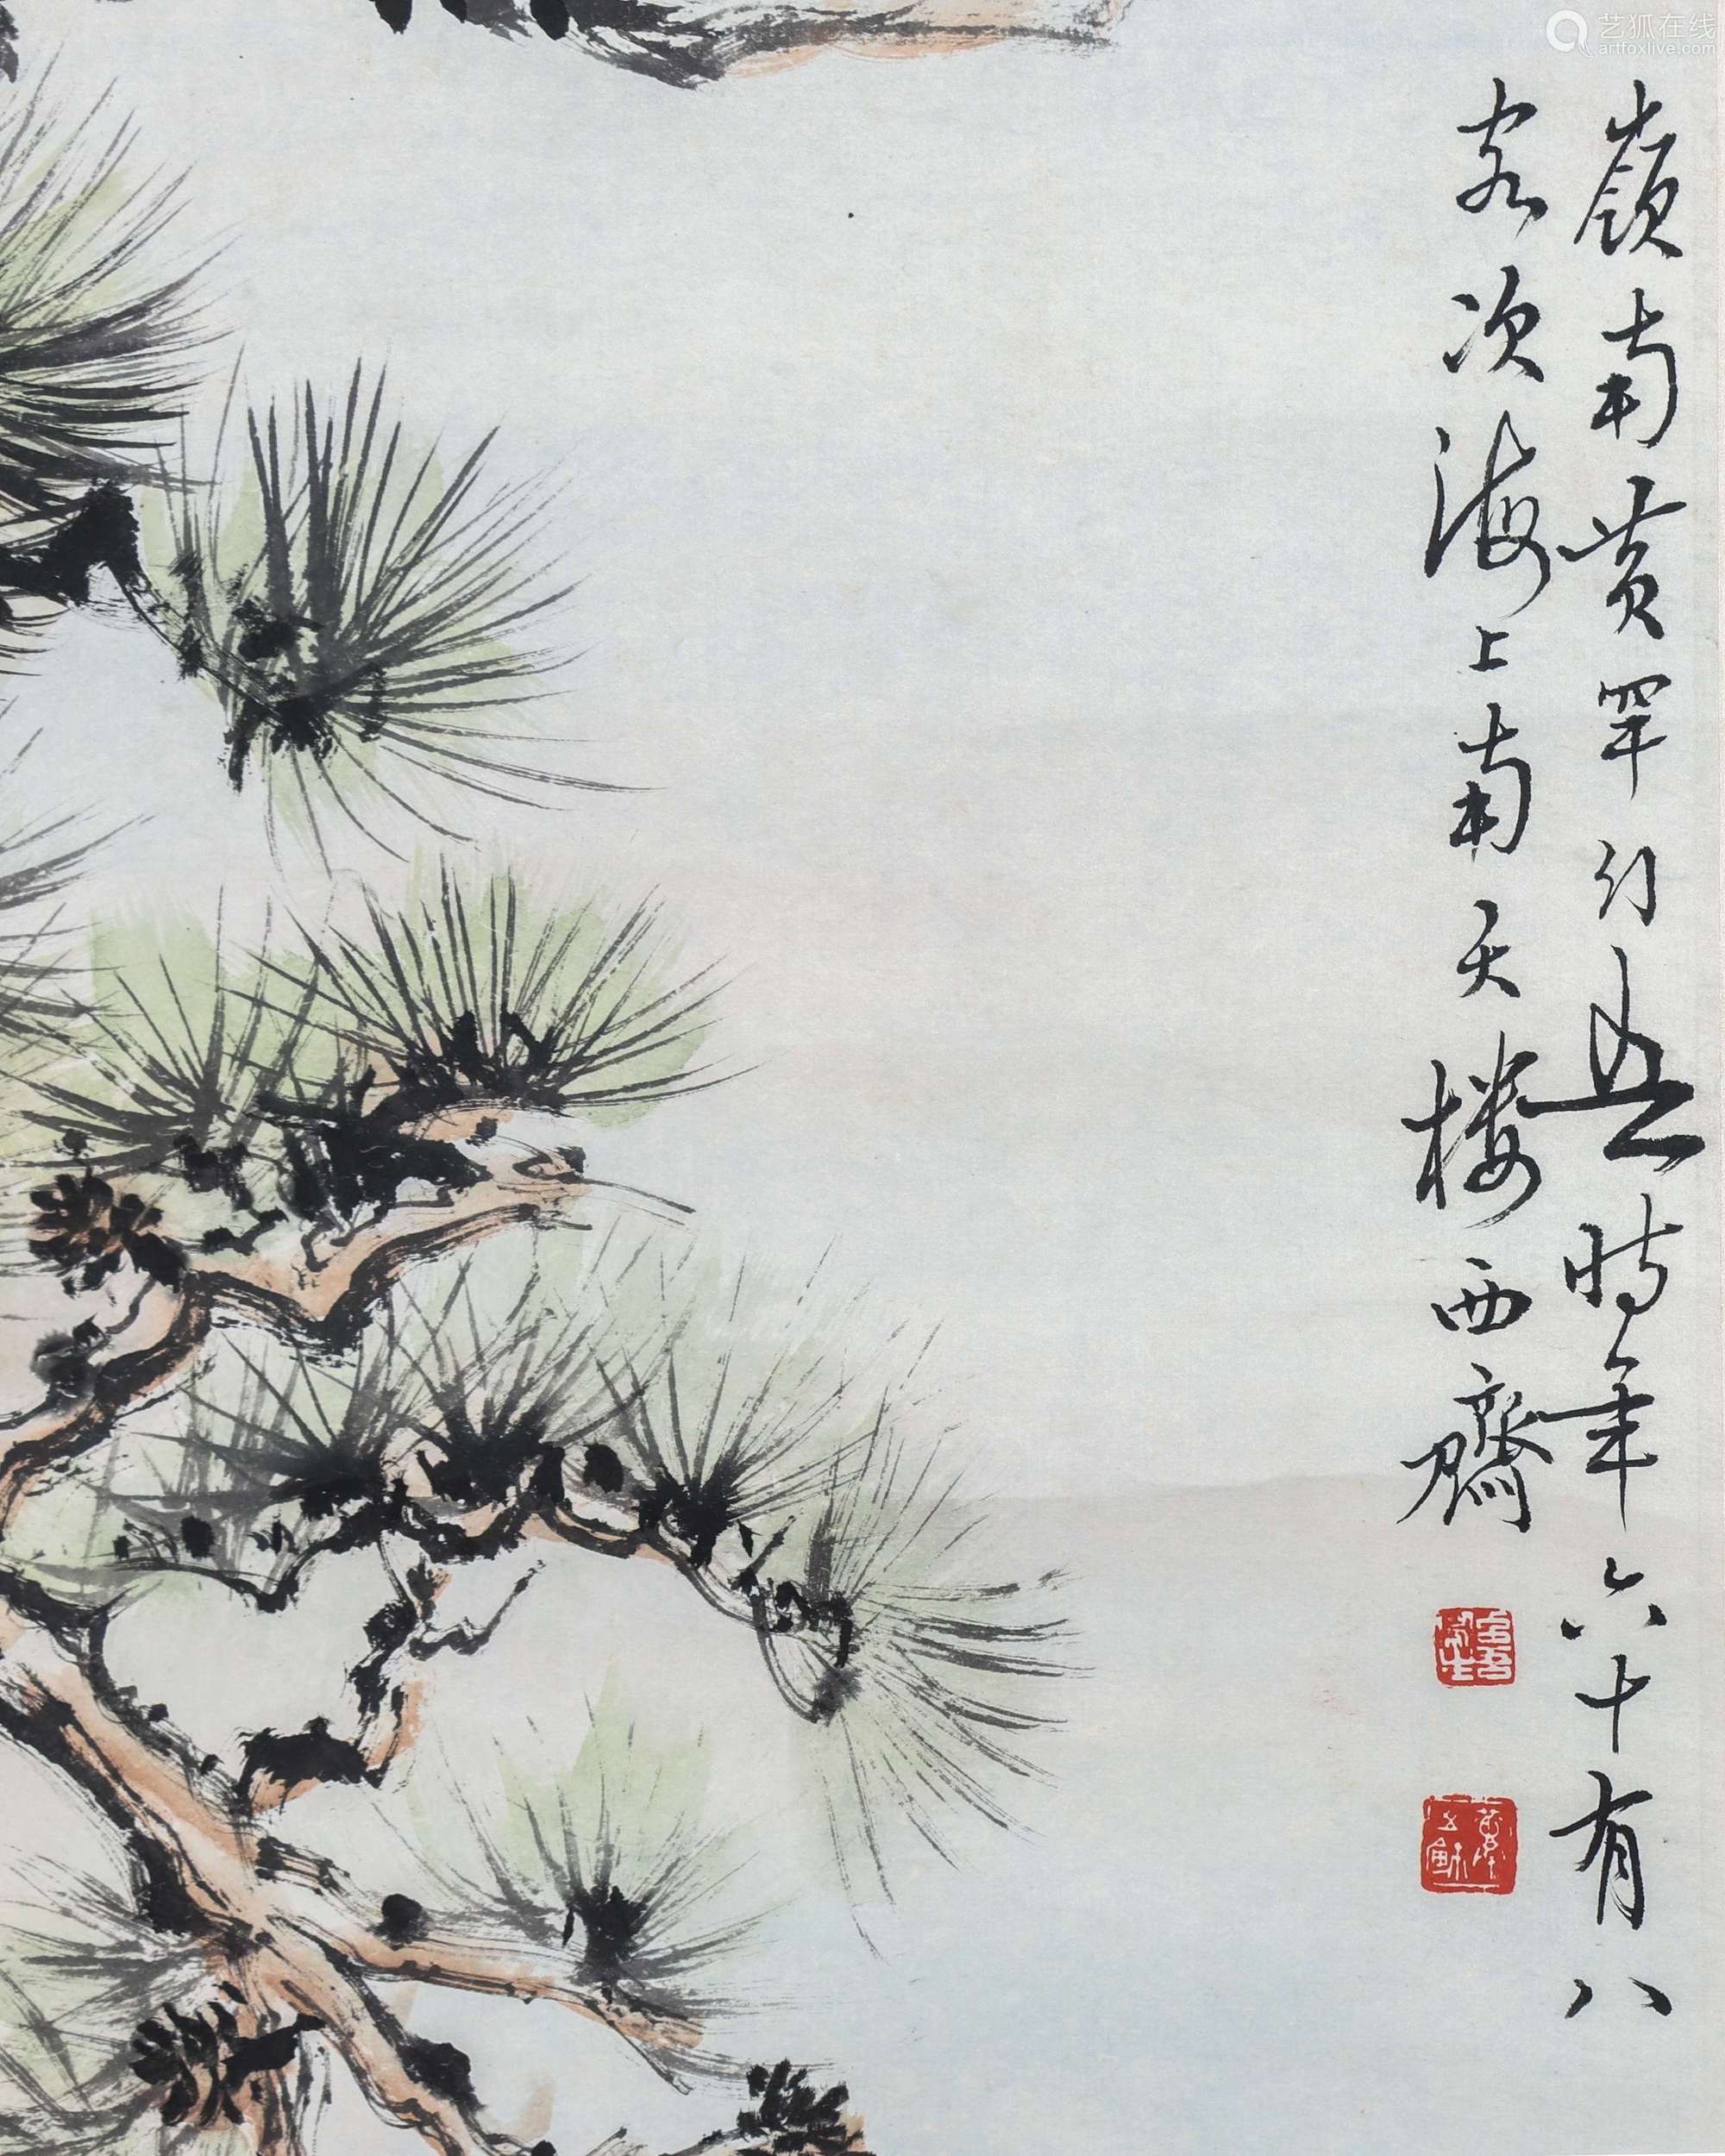 艺狐在线
artfoxlive.com
嶺南黄罕勺並時年六十有八
客次海上南天楼西齋